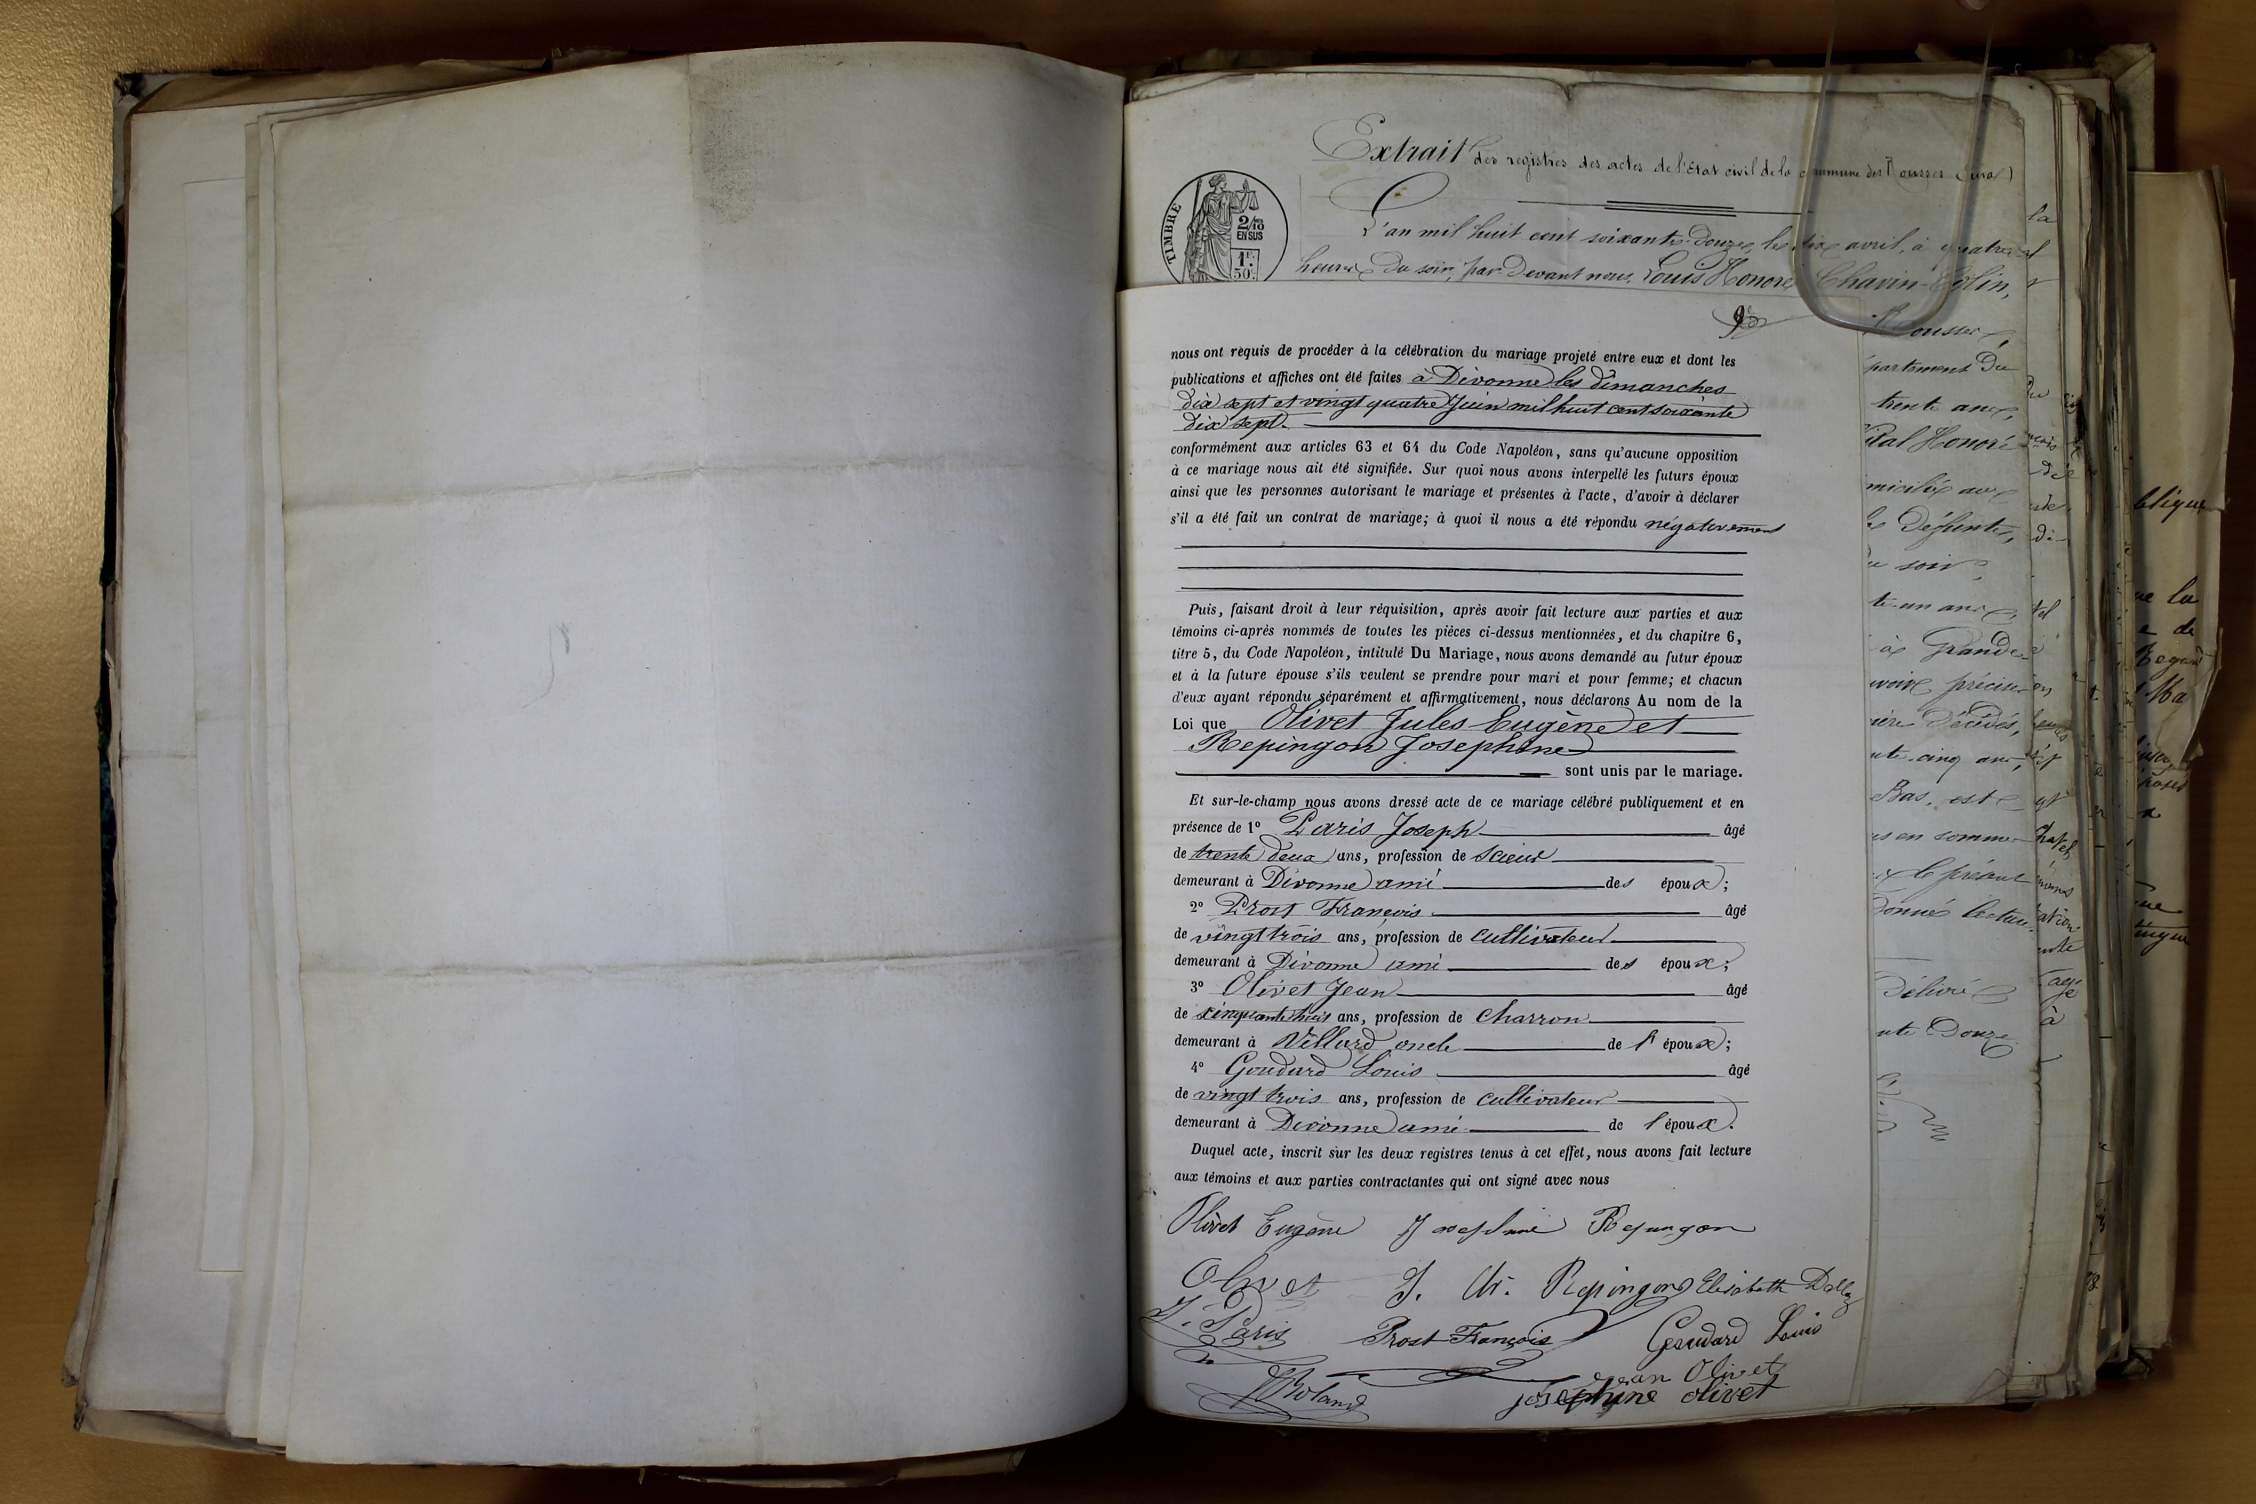 Extrait des registres des actes de l'Etat civil de la commune des Rousses (Jura)
TIMBRE
2/10
EN SUS
1F.
50c.
L'an mil huit cent soixante-douze, le dix avril, à quatre
heures du soir, par devant nous, Louis Honoré Chavin-Colin,
nous ont requis de procéder à la célébration du mariage projeté entre eux et dont les
publications et affiches ont été faites à Divonne les dimanches
dix sept et vingt quatre Juin mil huit cent soixante
dix sept.
conformément aux articles 63 et 64 du Code Napoléon, sans qu'aucune opposition
à ce mariage nous ait été signifiée. Sur quoi nous avons interpellé les futurs époux
ainsi que les personnes autorisant le mariage et présentes à l'acte, d'avoir à déclarer
s'il a été fait un contrat de mariage; à quoi il nous a été répondu négativement
Puis, faisant droit à leur réquisition, après avoir fait lecture aux parties et aux
témoins ci-après nommés de toutes les pièces ci-dessus mentionnées, et du chapitre 6,
titre 5, du Code Napoléon, intitulé Du Mariage, nous avons demandé au futur époux
et à la future épouse s'ils veulent se prendre pour mari et pour femme; et chacun
d'eux ayant répondu séparément et affirmativement, nous déclarons Au nom de la
Loi que Olivet Jules Eugène et
Repingon Josephine
sont unis par le mariage.
Et sur-le-champ nous avons dressé acte de ce mariage célébré publiquement et en
présence de 1° Paris Joseph âgé
de trente deux ans, profession de scieur
demeurant à Divonne ami des époux;
2° Prost François âgé
de vingt trois ans, profession de cultivateur
demeurant à Divonne ami des époux;
3° Olivet Jean âgé
de cinquante huit ans, profession de charron
demeurant à Villard oncle de l'époux;
4° Goudard Louis âgé
de vingt trois ans, profession de cultivateur
demeurant à Divonne ami de l'époux.
Duquel acte, inscrit sur les deux registres tenus à cet effet, nous avons fait lecture
aux témoins et aux parties contractantes qui ont signé avec nous
Olivet Eugène Josephine Repingon
Olivet J. Ch. Repingon Elisabeth Dalloz
J. Paris Prost François Goudard Louis
Jean Olivet
Roland josephine olivet
Rousses,
partement du
trente ans,
Vital Honoré
micilié aux
défunts,
du soir,
te-un ans,
à Grande
décédés,
nte-cinq ans,
Bas, est
us en somme
le présent
donné lecture.
Délivré
nte douze